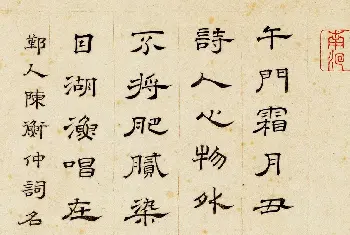 午門霜月丑
詩人心物外
不将肥膩染
日湖漁唱在
鄞人陳衡仲詞名